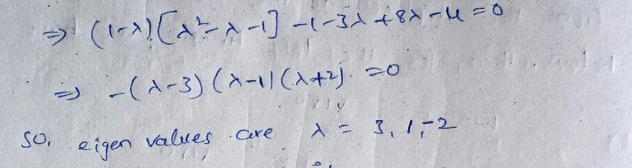 ⇒ (1-λ)[λ²-λ-1] -1-3λ+8λ-4=0
⇒ -(λ-3)(λ-1)(λ+2)=0
so, eigen values are λ = 3, 1, -2